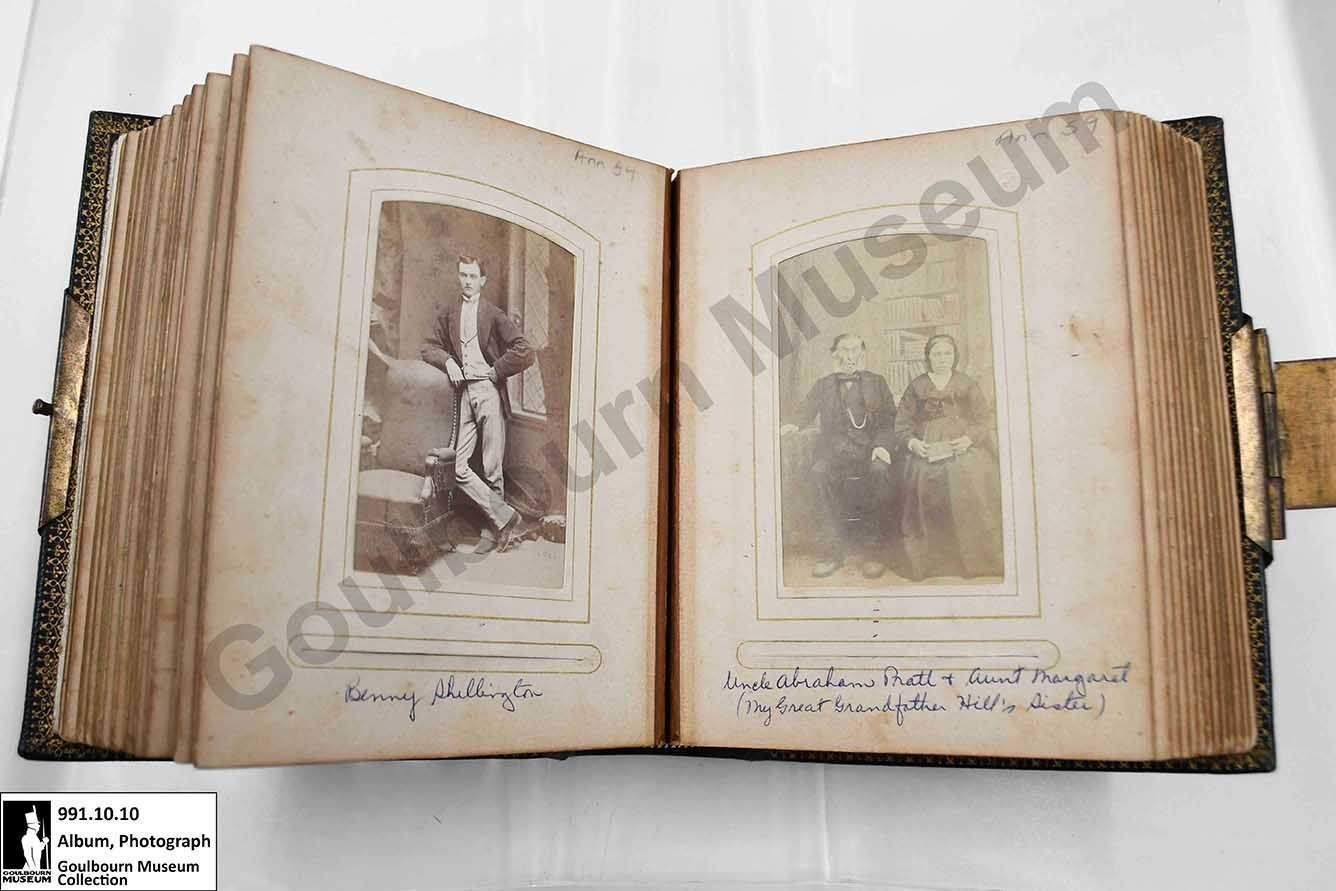 Ann 54
Benny Shillington
Uncle Abraham Pratt + Aunt Margaret
(My Great Grandfather Hill's Sister)
Goulbourn Museum
991.10.10
Album, Photograph
Goulbourn Museum
Collection
GOULBOURN
MUSEUM